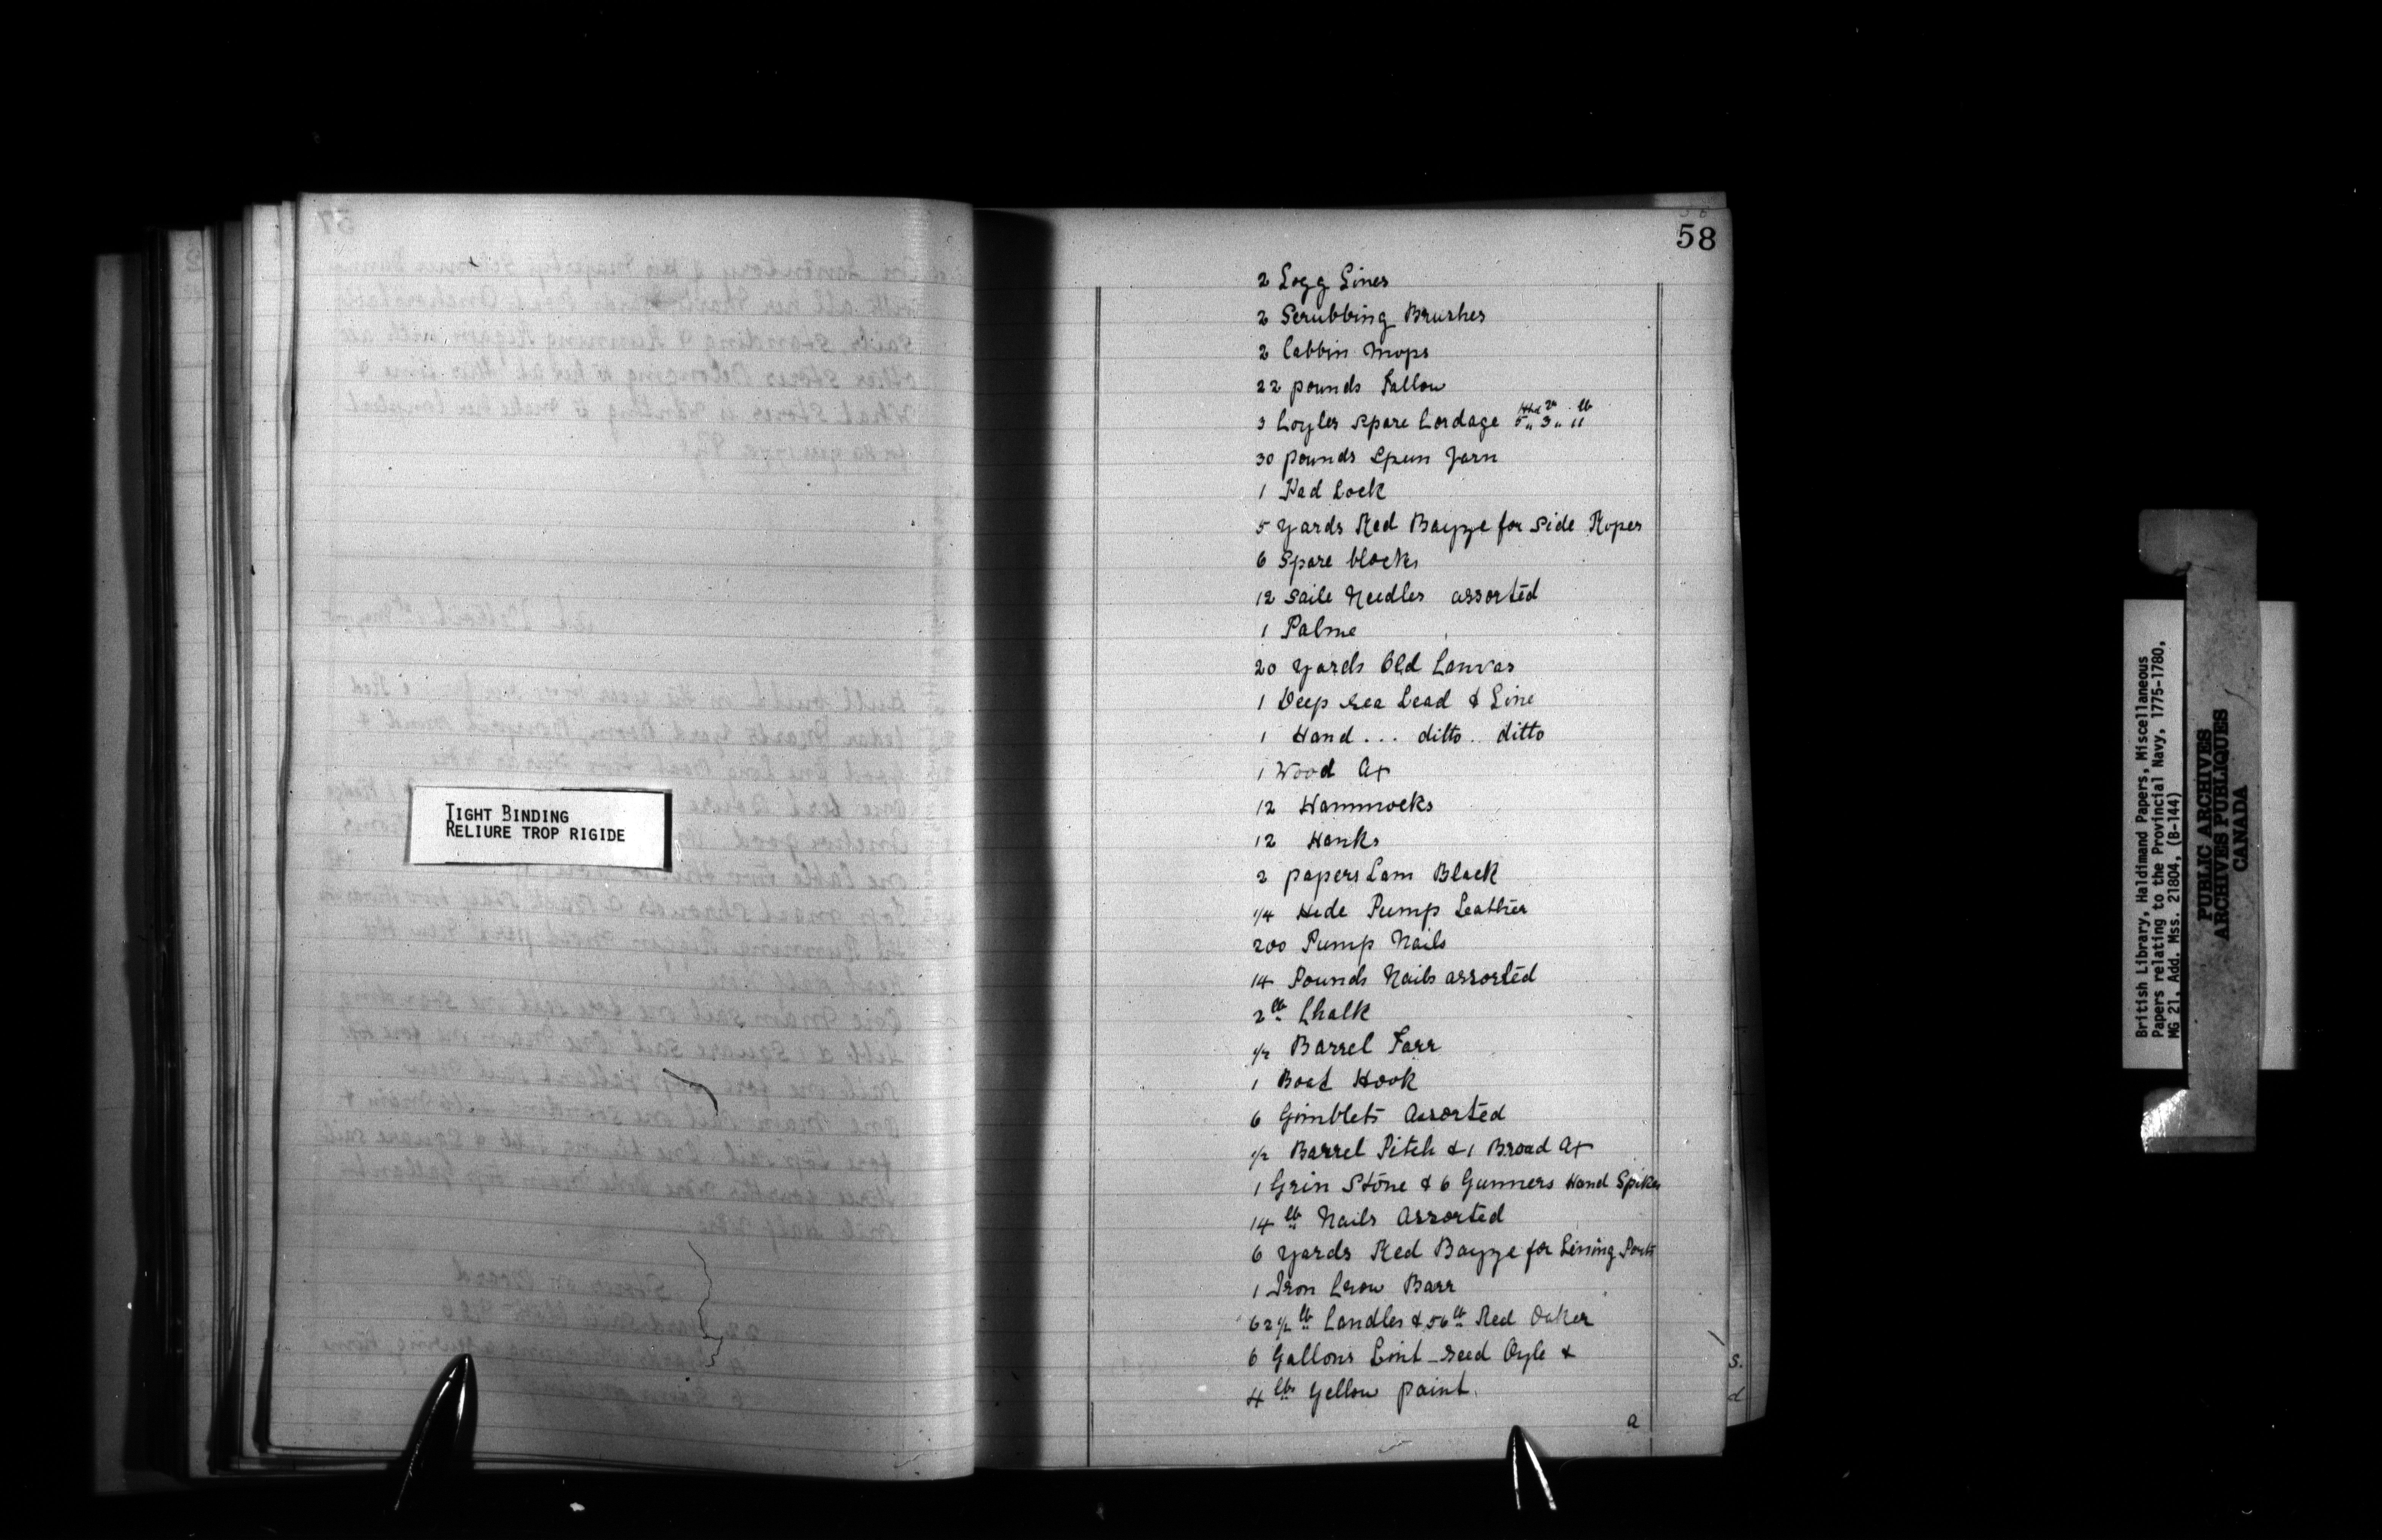 58
2 Logg Lines
2 Scrubbing Brushes
2 Cabbin Mops
22 pounds Tallow
3 Coyles Spare Cordage 5 Hhd 3 qr 11 lb
30 pounds Spun Yarn
1 Pad Lock
5 yards Red Bayze for Side Ropes
6 Spare blocks
12 Saile Needles assorted
1 Palme
20 yards Old Canvas
1 Deep Sea Lead & Line
1 Hand... ditto.. ditto
1 Wood Ax
12 Hammocks
12 Hanks
2 papers Lam Black
1/4 Hide Pump Leather
200 Pump Nails
14 Pounds Nails assorted
2 lb Chalk
1/2 Barrel Tarr
1 Boat Hook
6 Gimblets Assorted
1/2 Barrel Pitch & 1 Broad Ax
1 Grin Stone & 6 Gunners Hand Spikes
14 lb Nails Assorted
6 yards Red Bayze for Lining Ports
1 Iron Crow Barr
62 1/2 lb Candles & 56 lb Red Oaker
6 Gallons Lint-seed Oyle &
4 lb Yellow paint.
a
s.
d
TIGHT BINDING
RELIURE TROP RIGIDE
British Library, Haldimand Papers, Miscellaneous
Papers relating to the Provincial Navy, 1775-1780,
MG 21, Add. Mss. 21804, (B-144)
PUBLIC ARCHIVES
ARCHIVES PUBLIQUES
CANADA